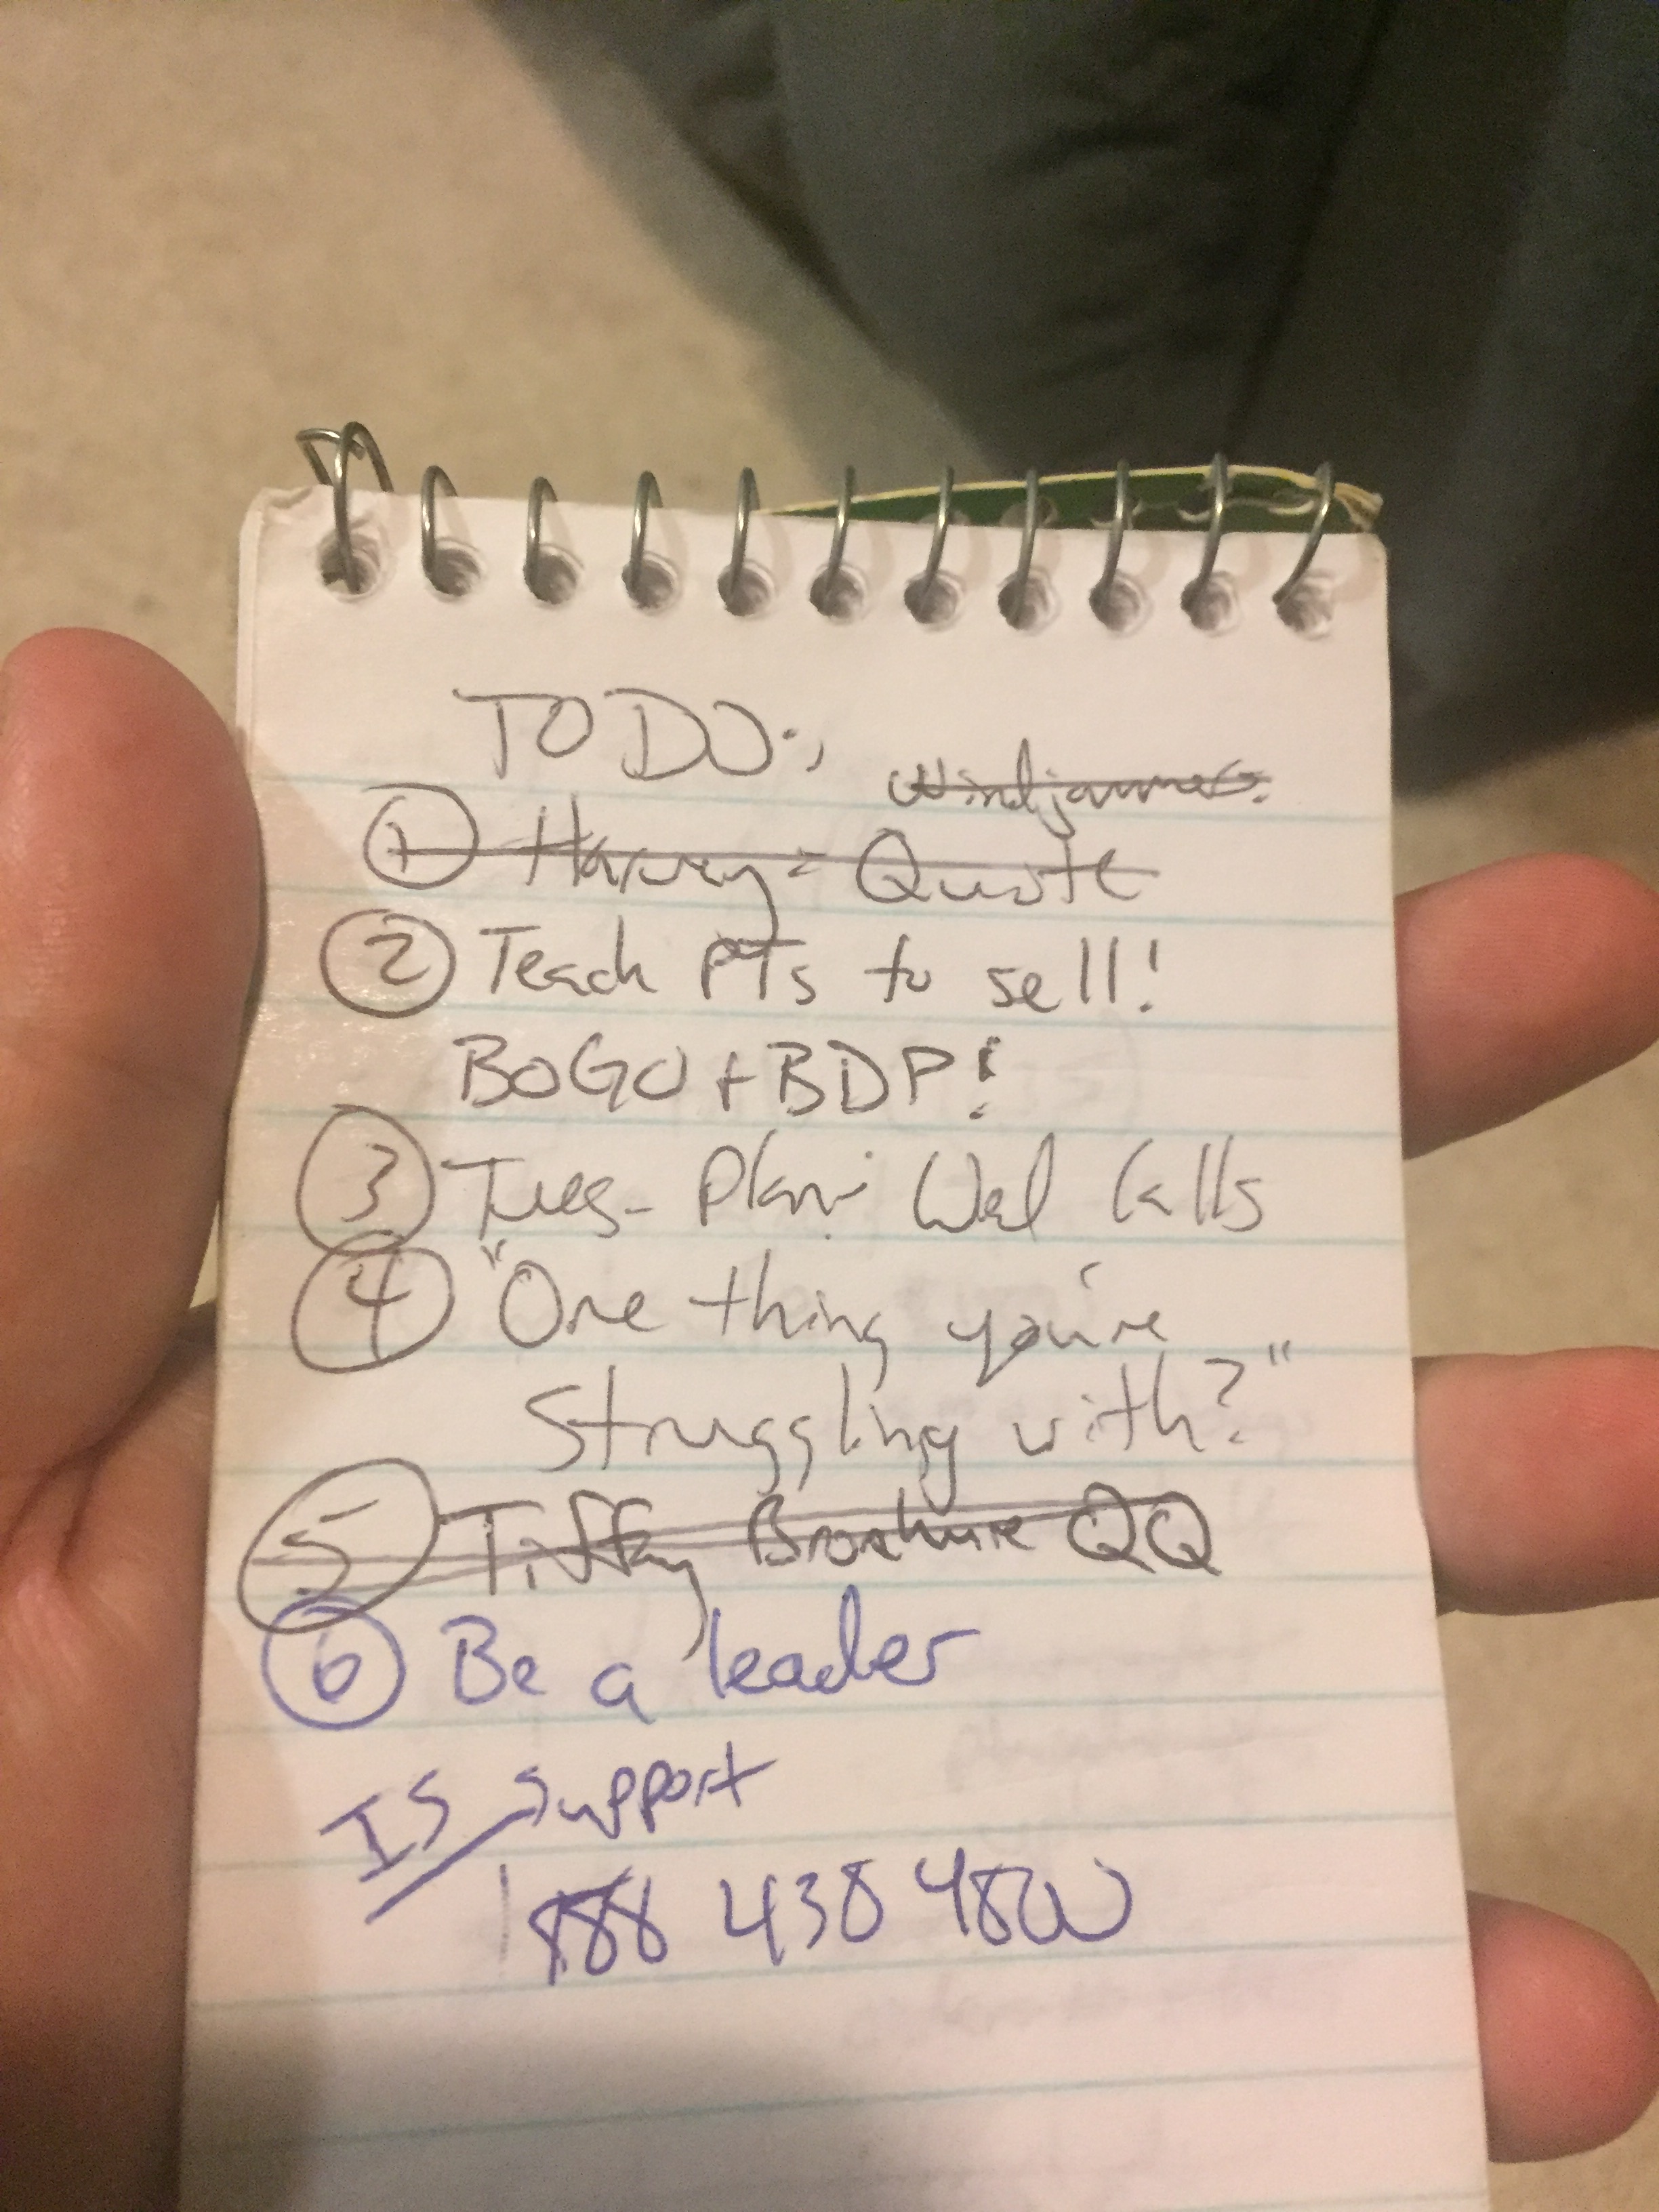 TO DO:
Windjammer.
① Harvey - Quote
② Teach PTs to sell!
BOGO + BDP!
③ Tues- Plan: Wed Calls
④ "One thing you're
struggling with?"
⑤ Tiffany Brochure QQ
⑥ Be a leader
IS support
1 888 438 4800